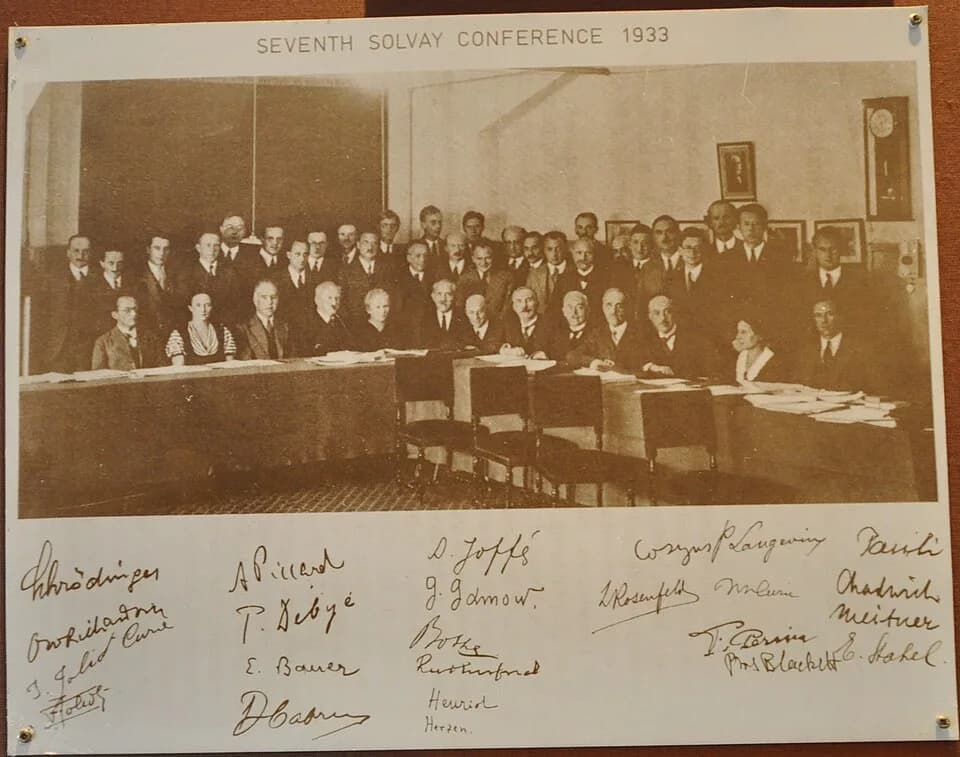 SEVENTH SOLVAY CONFERENCE 1933
Schrödinger
OW Richardson
J. Joliot Curie
A Piccard
P. Debye
E. Bauer
D Cabrera
A. Joffé
G. Gamow.
Bothe
Rutherford
Henriot
Herzen.
Cosyns P Langevin
L Rosenfeld M Curie
F. Perrin
PMS Blackett
Pauli
Chadwick
Meitner
E. Stahel.